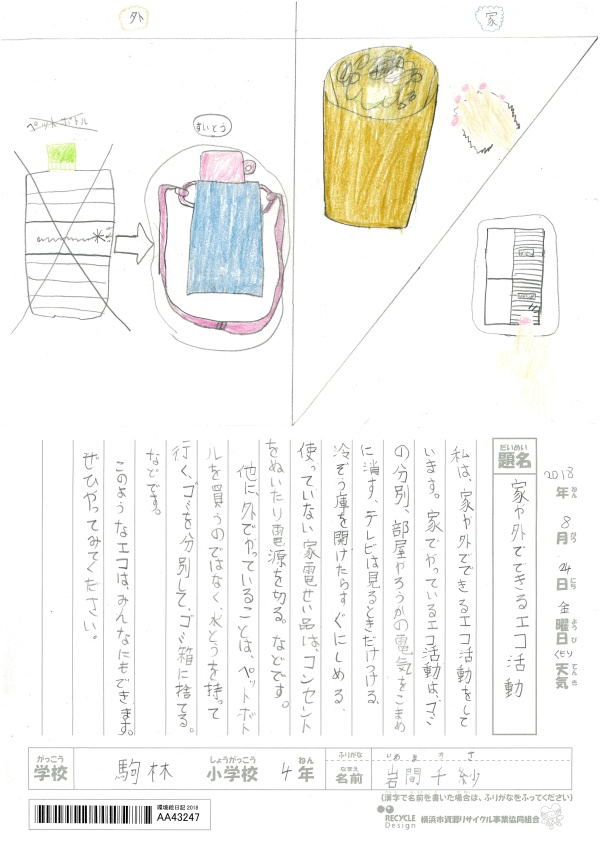 外
家
ペットボトル
すいとう
だいめい
題名
家や外でできるエコ活動
2018年 8月 24日 金曜日 くもり 天気
ねん がつ にち ようび てんき
私は、家や外でできるエコ活動をして
います。家でやっているエコ活動は、ゴミ
の分別、部屋やろうかの電気をこまめ
に消す、テレビは見るときだけつける、
冷ぞう庫を開けたらすぐにしめる、
使っていない家電せい品は、コンセント
をぬいたり電源を切る。などです。
他に、外でやっていることは、ペットボト
ルを買うのではなく、水とうを持って
行く、ゴミを分別して、ゴミ箱に捨てる。
などです。
このようなエコは、みんなにもできます。
ぜひやってみてください。
がっこう しょうがっこう ねん ふりがな
学校 駒林 小学校 4年
なまえ
名前 岩間千紗
(漢字で名前を書いた場合は、ふりがなをふってください)
環境絵日記 2018
AA43247
RECYCLE Design
横浜市資源リサイクル事業協同組合